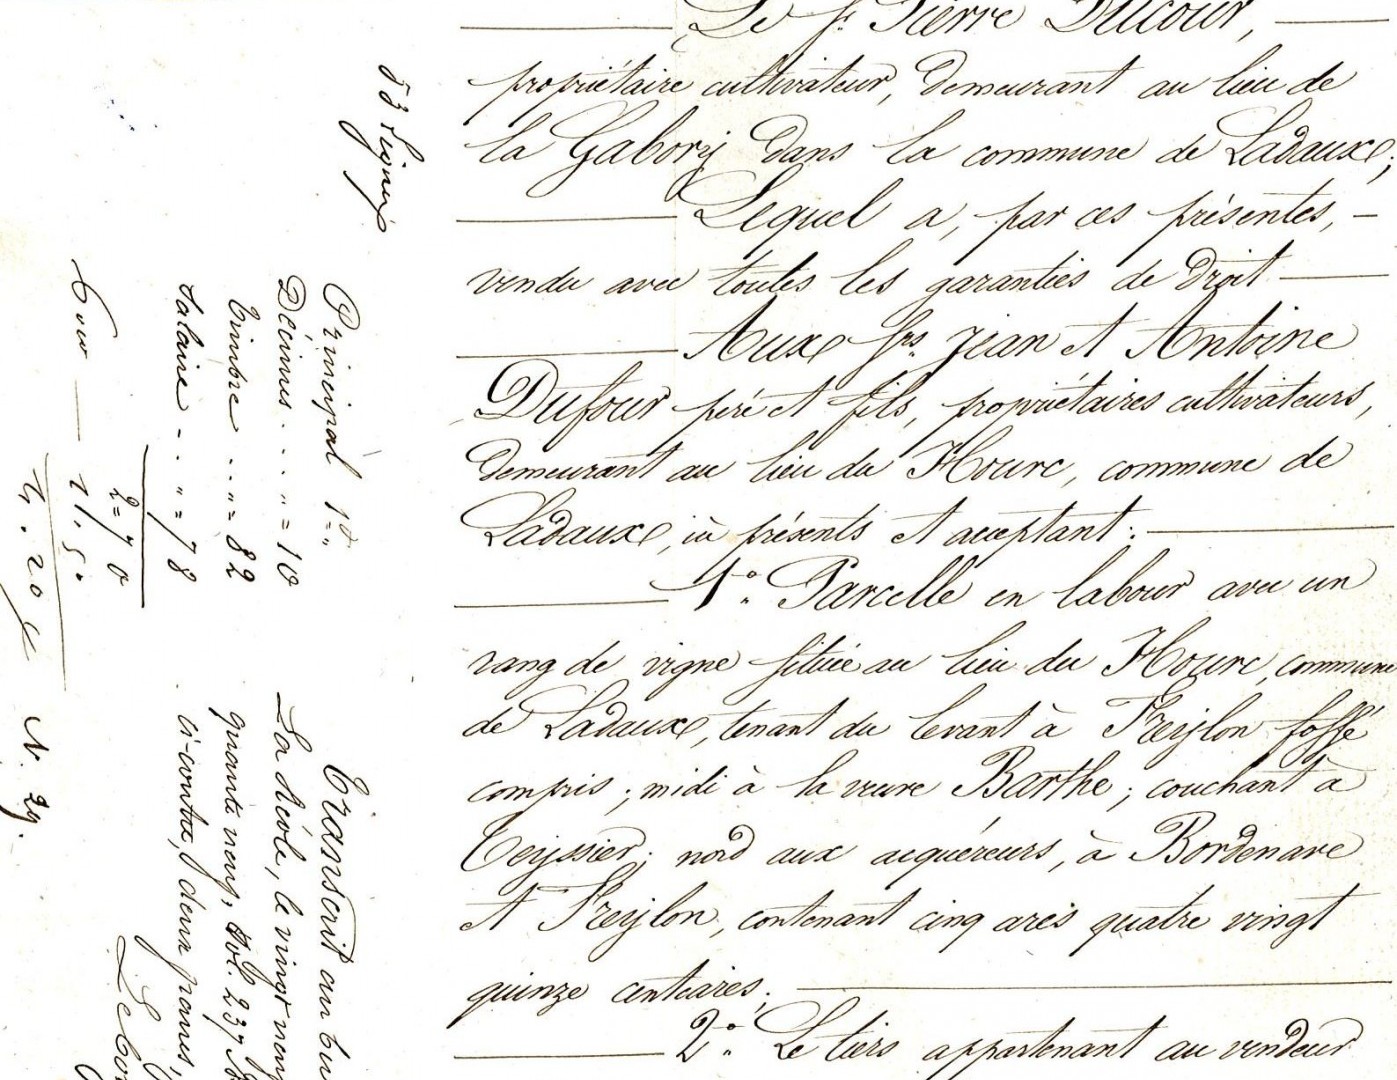 Le Sr. Pierre Ducour,
propriétaire cultivateur, demeurant au lieu de
la Gabory dans la commune de Ladaux;
Lequel a, par ces présentes,
vendu avec toutes les garanties de droit
Aux Srs. Jean et Antoine
Dufour père et fils, propriétaires cultivateurs,
demeurant au lieu du Hourc, commune de
Ladaux, ici présents et acceptant:
1°. Parcelle en labour avec un
rang de vigne située au lieu du Hourc, commune
de Ladaux, tenant du levant à Freylon fossé
compris; midi à la veuve Barthe; couchant à
Teyssier; nord aux acquéreurs, à Bordenave
et Freylon, contenant cinq ares quatre vingt
quinze centiares;
2°. Le tiers appartenant au vendeur
53
Principal 1 "
Décimes . . . " = 10
Timbre . . . " = 82
Salaire - . . " = 78
2 = 70
1. 50
4. 20
N. 29.
Transcrit au bu
La Réole, le vingt neuf
quante neuf, vol. 237
ci-contre, deux francs,